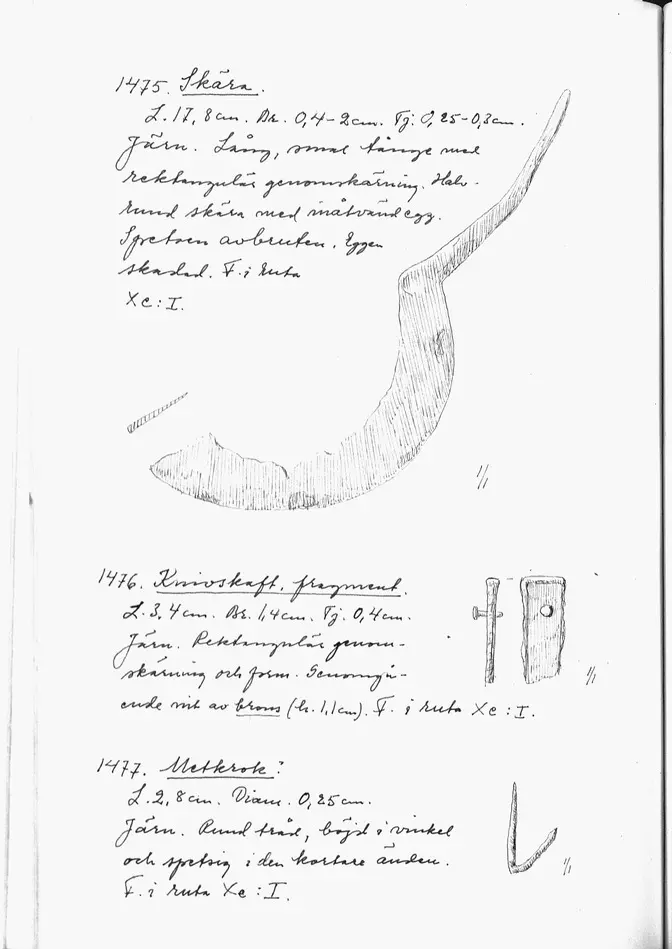 1475. Skära.
L. 17,8 cm. Br. 0,4-2 cm. Tj. 0,25-0,3 cm.
Järn. Lång, smal tånge med
rektangulär genomskärning. Halv-
rund skära med inåtvänd egg.
Spetsen avbruten. Eggen
skadad. F. i ruta
Xc: I.
1/1
1476. Knivskaft, fragment.
L. 3,4 cm. Br. 1,4 cm. Tj. 0,4 cm.
Järn. Rektangulär genom-
skärning och form. Genomgå-
ende nit av brons (h. 1,1 cm). F. i ruta Xc: I.
1/1
1477. Metkrok?
L. 2,8 cm. Diam. 0,25 cm.
Järn. Rund tråd, böjd i vinkel
och spetsig i den kortare änden.
F. i ruta Xc: I.
1/1